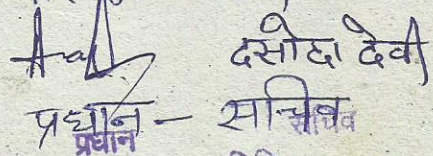 दसोदा देवी
प्रधान - सचिव
प्रधान सचिव